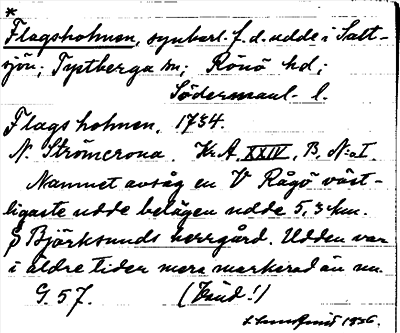 *
Flagsholmen, synbarl. f. d. udde i Salt-
sjön; Tystberga sn; Rönö hd;
Södermanl. l.
Flagsholmen. 1734.
N. Strömcrona. Kr. A. XXIV, B, N:o I.
Namnet avsåg en V Rågö väst-
ligaste udde belägen udde 5,3 km.
S Björksunds herrgård. Udden var
i äldre tider mera markerad än nu.
G. 57. (Eud!)
1936.